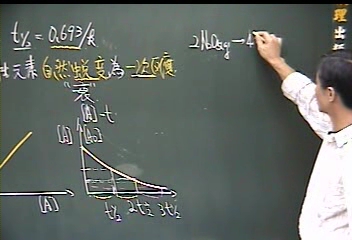 t½ = 0.693/k
性元素自然蛻變為一次反應
"衰"
[A]-t
[A]
[A₀]
t½ 2t½ 3t½
[A]
2N₂O₅(g) → 4